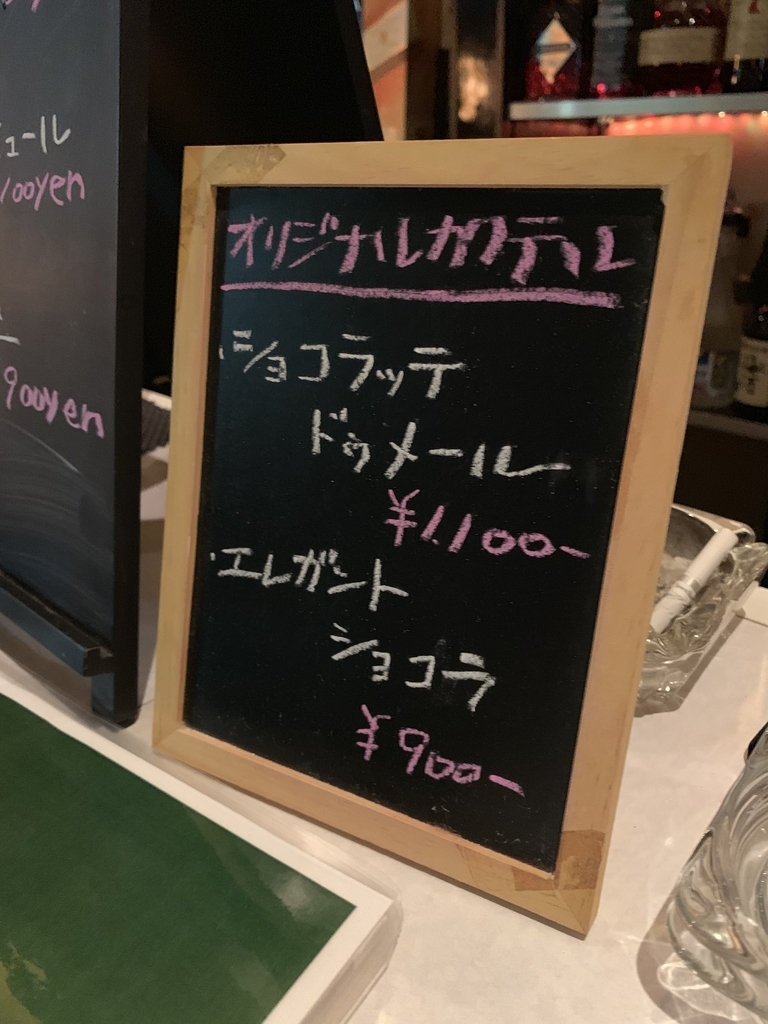 オリジナルカクテル
・ショコラッテ
ドゥメール
¥1,100-
・エレガント
ショコラ
¥900-
ュール
100yen
900yen